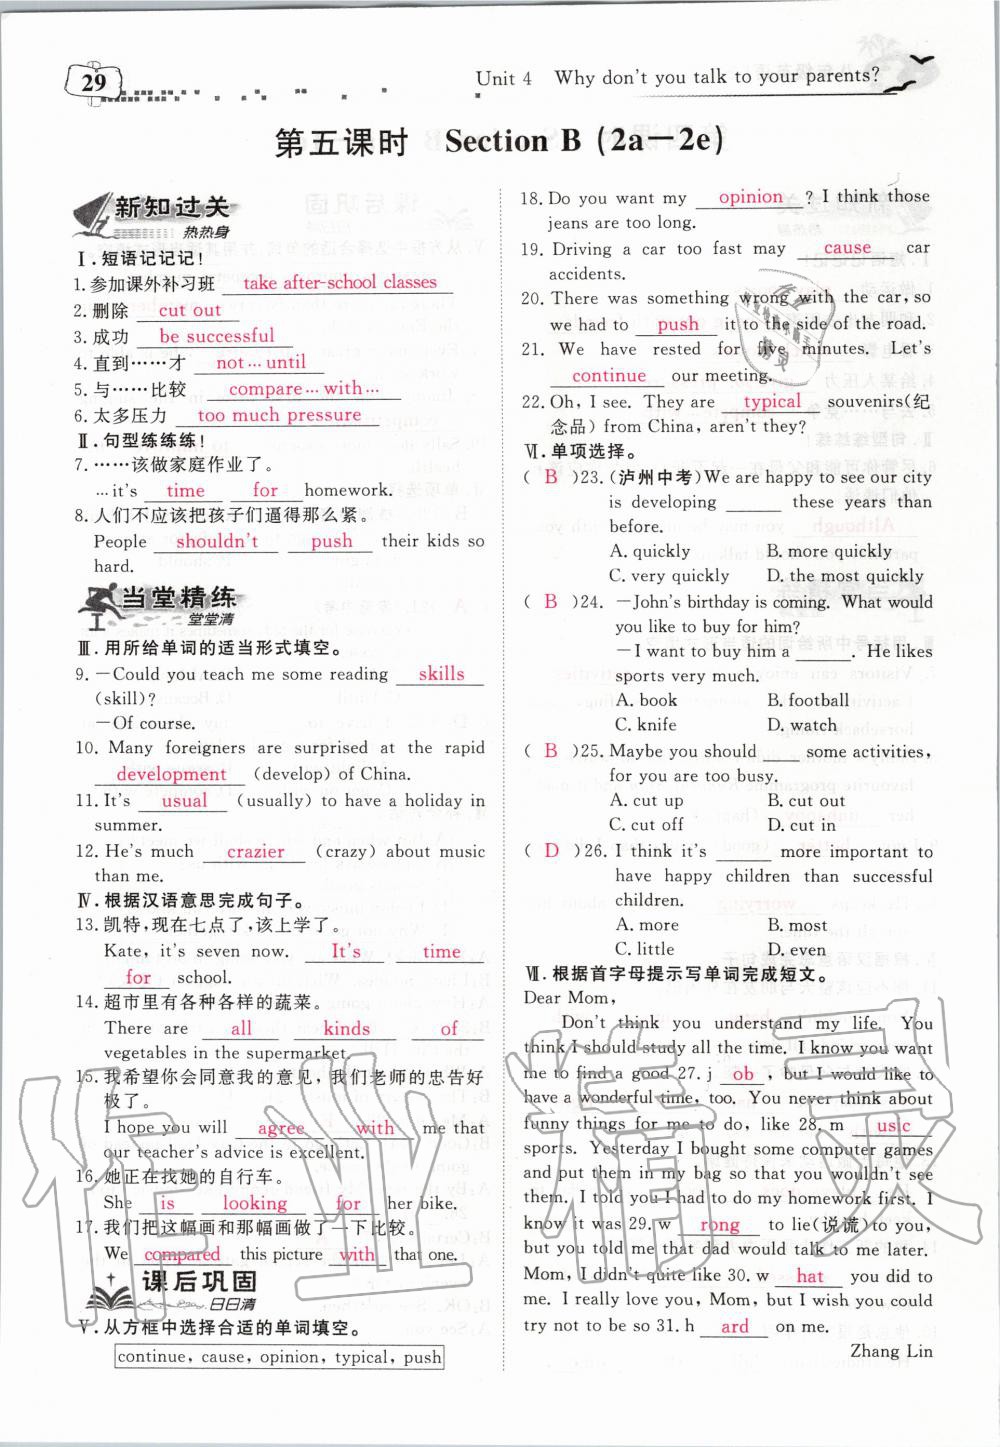 29
Unit 4 Why don't you talk to your parents?
第五课时 Section B (2a—2e)
新知过关
热热身
Ⅰ.短语记记记!
1.参加课外补习班 take after-school classes
2.删除 cut out
3.成功 be successful
4.直到……才 not…until
5.与……比较 compare…with…
6.太多压力 too much pressure
Ⅱ.句型练练练!
7.……该做家庭作业了。
…it's time for homework.
8.人们不应该把孩子们逼得那么紧。
People shouldn't push their kids so
hard.
当堂精练
堂堂清
Ⅲ.用所给单词的适当形式填空。
9.—Could you teach me some reading skills
(skill)?
—Of course.
10. Many foreigners are surprised at the rapid
development (develop) of China.
11.It's usual (usually) to have a holiday in
summer.
12. He's much crazier (crazy) about music
than me.
Ⅳ.根据汉语意思完成句子。
13.凯特,现在七点了,该上学了。
Kate, it's seven now. It's time
for school.
14.超市里有各种各样的蔬菜。
There are all kinds of
vegetables in the supermarket.
15.我希望你会同意我的意见,我们老师的忠告好
极了。
I hope you will agree with me that
our teacher's advice is excellent.
16.她正在找她的自行车。
She is looking for her bike.
17.我们把这幅画和那幅画做了一下比较。
We compared this picture with that one.
课后巩固
日日清
Ⅴ.从方框中选择合适的单词填空。
continue, cause, opinion, typical, push
18. Do you want my opinion? I think those
jeans are too long.
19. Driving a car too fast may cause car
accidents.
20. There was something wrong with the car, so
we had to push it to the side of the road.
21. We have rested for five minutes. Let's
continue our meeting.
22. Oh, I see. They are typical souvenirs(纪
念品) from China, aren't they?
Ⅵ.单项选择。
( B )23.(泸州中考)We are happy to see our city
is developing ______ these years than
before.
A. quickly B. more quickly
C. very quickly D. the most quickly
( B )24. —John's birthday is coming. What would
you like to buy for him?
—I want to buy him a ______. He likes
sports very much.
A. book B. football
C. knife D. watch
( B )25. Maybe you should ____ some activities,
for you are too busy.
A. cut up B. cut out
C. cut off D. cut in
( D )26. I think it's ______ more important to
have happy children than successful
children.
A. more B. most
C. little D. even
Ⅶ.根据首字母提示写单词完成短文。
Dear Mom,
Don't think you understand my life. You
think I should study all the time. I know you want
me to find a good 27. j ob, but I would like to
have a wonderful time, too. You never think about
funny things for me to do, like 28. m usic
sports. Yesterday I bought some computer games
and put them in my bag so that you wouldn't see
them. I told you I had to do my homework first. I
know it was 29. w rong to lie(说谎) to you,
but you told me that dad would talk to me later.
Mom, I didn't quite like 30. w hat you did to
me. I really love you, Mom, but I wish you could
try not to be so 31. h ard on me.
Zhang Lin
作业精灵